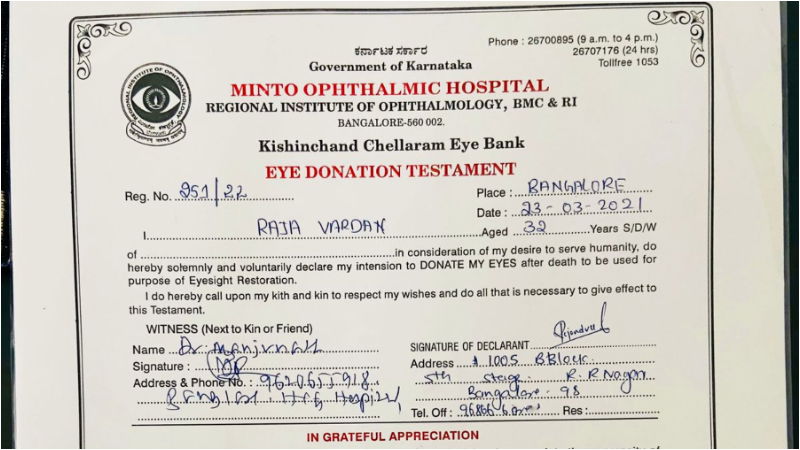 ಕರ್ನಾಟಕ ಸರ್ಕಾರ
Phone : 26700895 (9 a.m. to 4 p.m.)
26707176 (24 hrs)
Tollfree 1053
Government of Karnataka
MINTO OPHTHALMIC HOSPITAL
REGIONAL INSTITUTE OF OPHTHALMOLOGY, BMC & RI
BANGALORE-560 002.
Kishinchand Chellaram Eye Bank
EYE DONATION TESTAMENT
Reg. No. 251/22
Place : BANGALORE
Date : 23-03-2021
I RAJA VARDAN Aged 32 Years S/D/W
of in consideration of my desire to serve humanity, do
hereby solemnly and voluntarily declare my intension to DONATE MY EYES after death to be used for
purpose of Eyesight Restoration.
I do hereby call upon my kith and kin to respect my wishes and do all that is necessary to give effect to
this Testament.
WITNESS (Next to Kin or Friend)
Name Dr. Manjunath
Signature :
Address & Phone No. : 9620655918
Hospital
SIGNATURE OF DECLARANT
Address 1005 B Block
5th Stage R. R Nagar
Bangalore 98
Tel. Off : Res :
IN GRATEFUL APPRECIATION